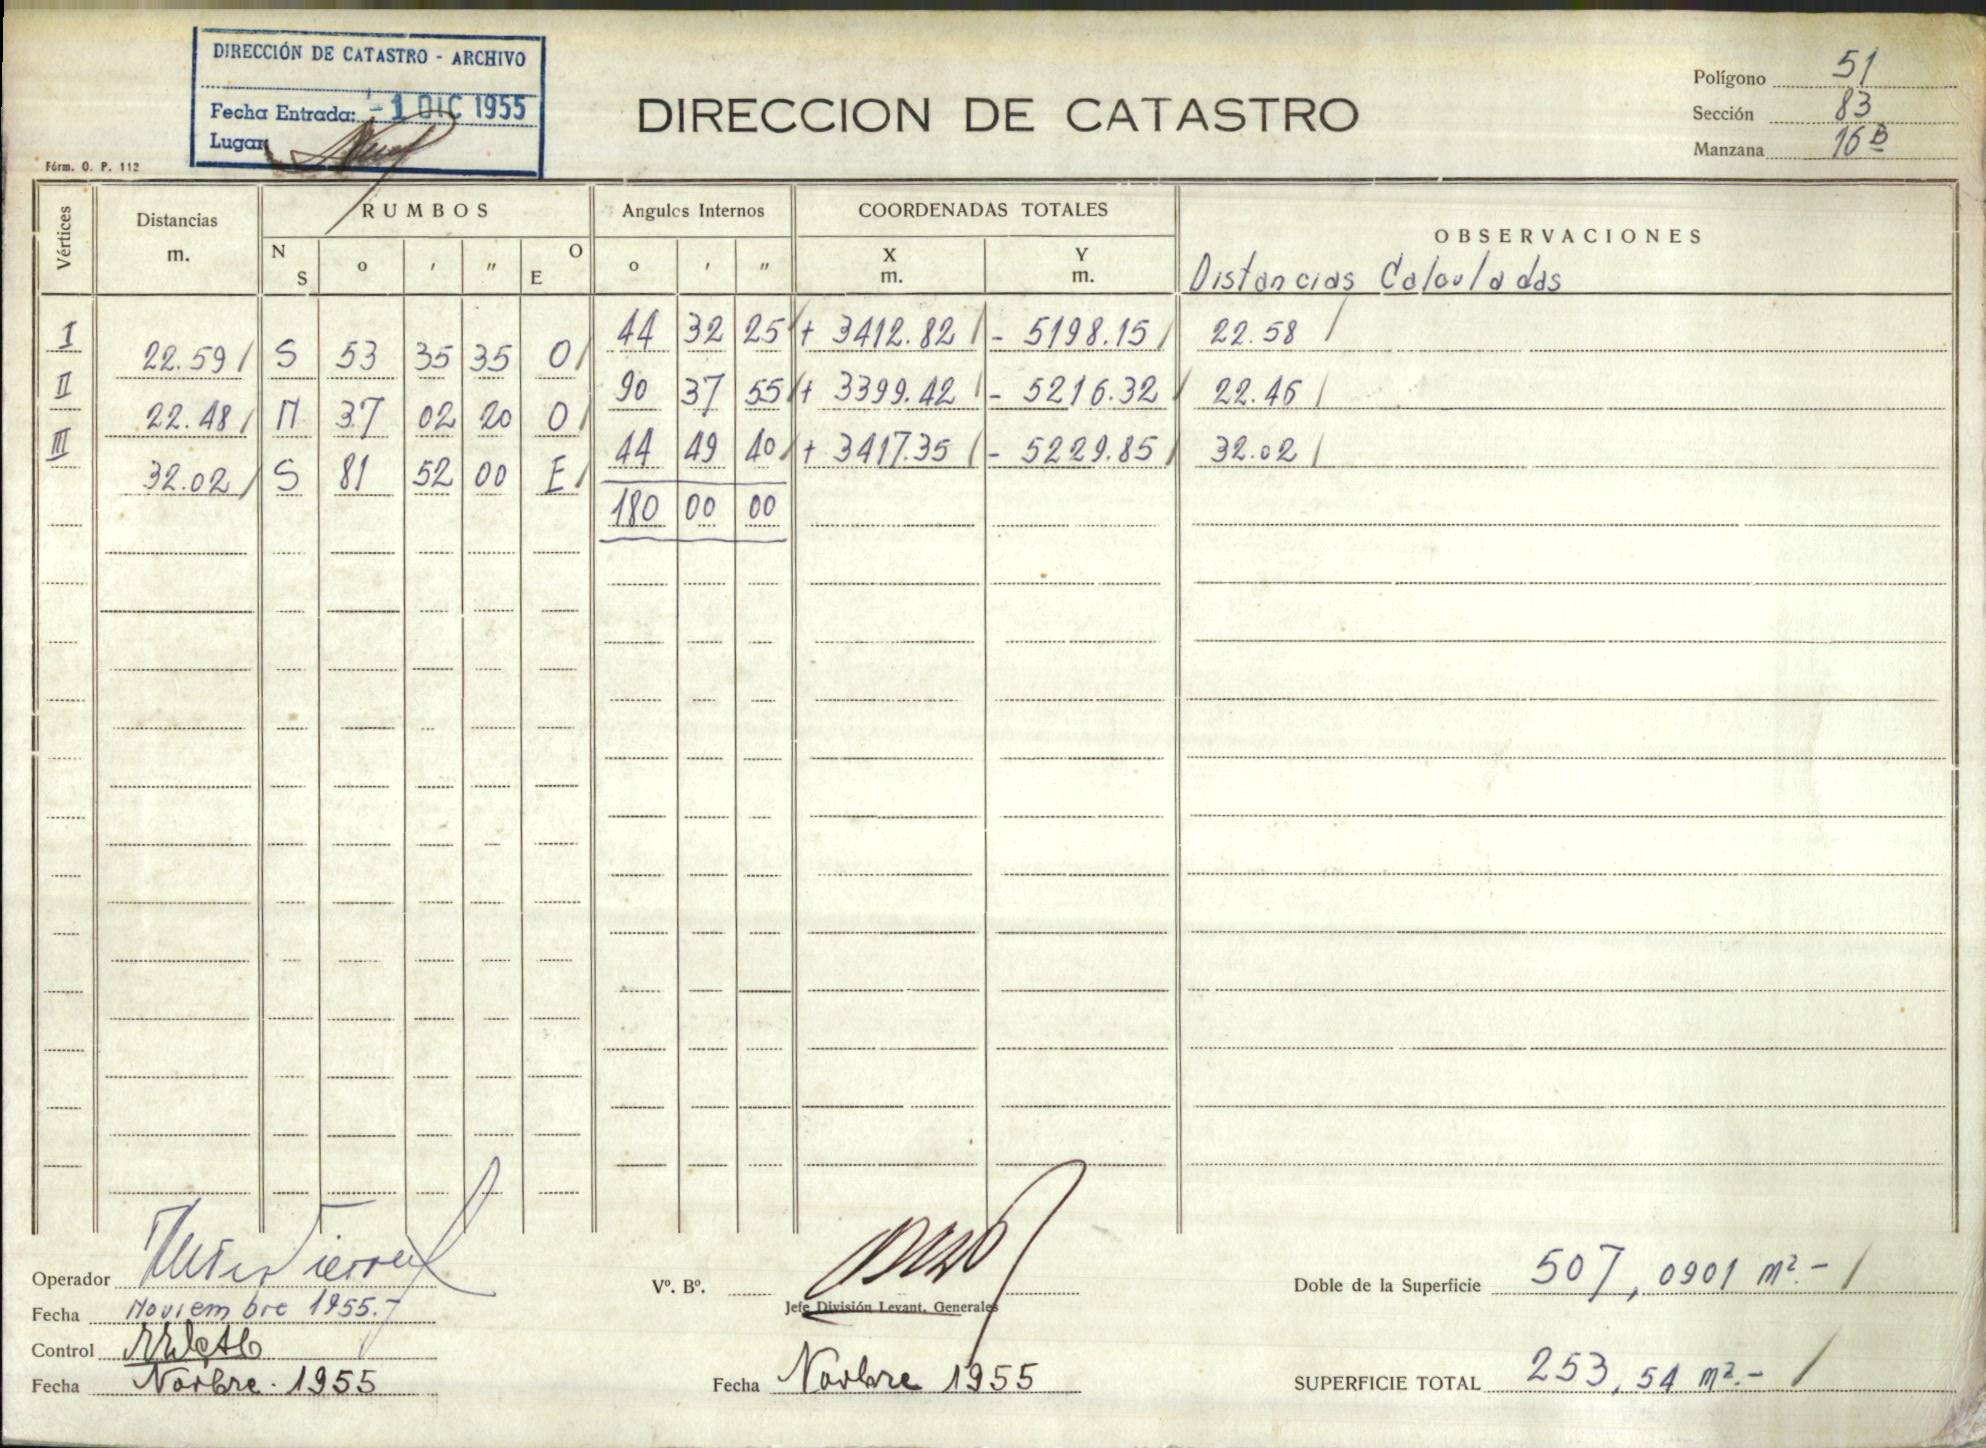 DIRECCIÓN DE CATASTRO - ARCHIVO
Fecha Entrada: - 1 DIC 1955
Lugar
Fórm. O. P. 112
DIRECCION DE CATASTRO
Polígono 51
Sección 83
Manzana 16 B
Vértices Distancias m. RUMBOS N S o ' " O E Angulos Internos o ' " COORDENADAS TOTALES X m. Y m. OBSERVACIONES
Distancias Calculadas
I 44 32 25 / + 3412.82 / - 5198.15 / 22.58 /
22.59 / S 53 35 35 O /
II 90 37 55 / + 3399.42 / - 5216.32 / 22.46 /
22.48 / N 37 02 20 O /
III 44 49 40 / + 3417.35 / - 5229.85 / 32.02 /
32.02 / S 81 52 00 E /
180 00 00
Operador
Fecha Noviembre 1955.-
Control
Fecha Novbre. 1955
Vº. Bº.
Jefe División Levant. Generales
Fecha Novbre 1955
Doble de la Superficie 507,0901 m².- /
SUPERFICIE TOTAL 253,54 m².- /